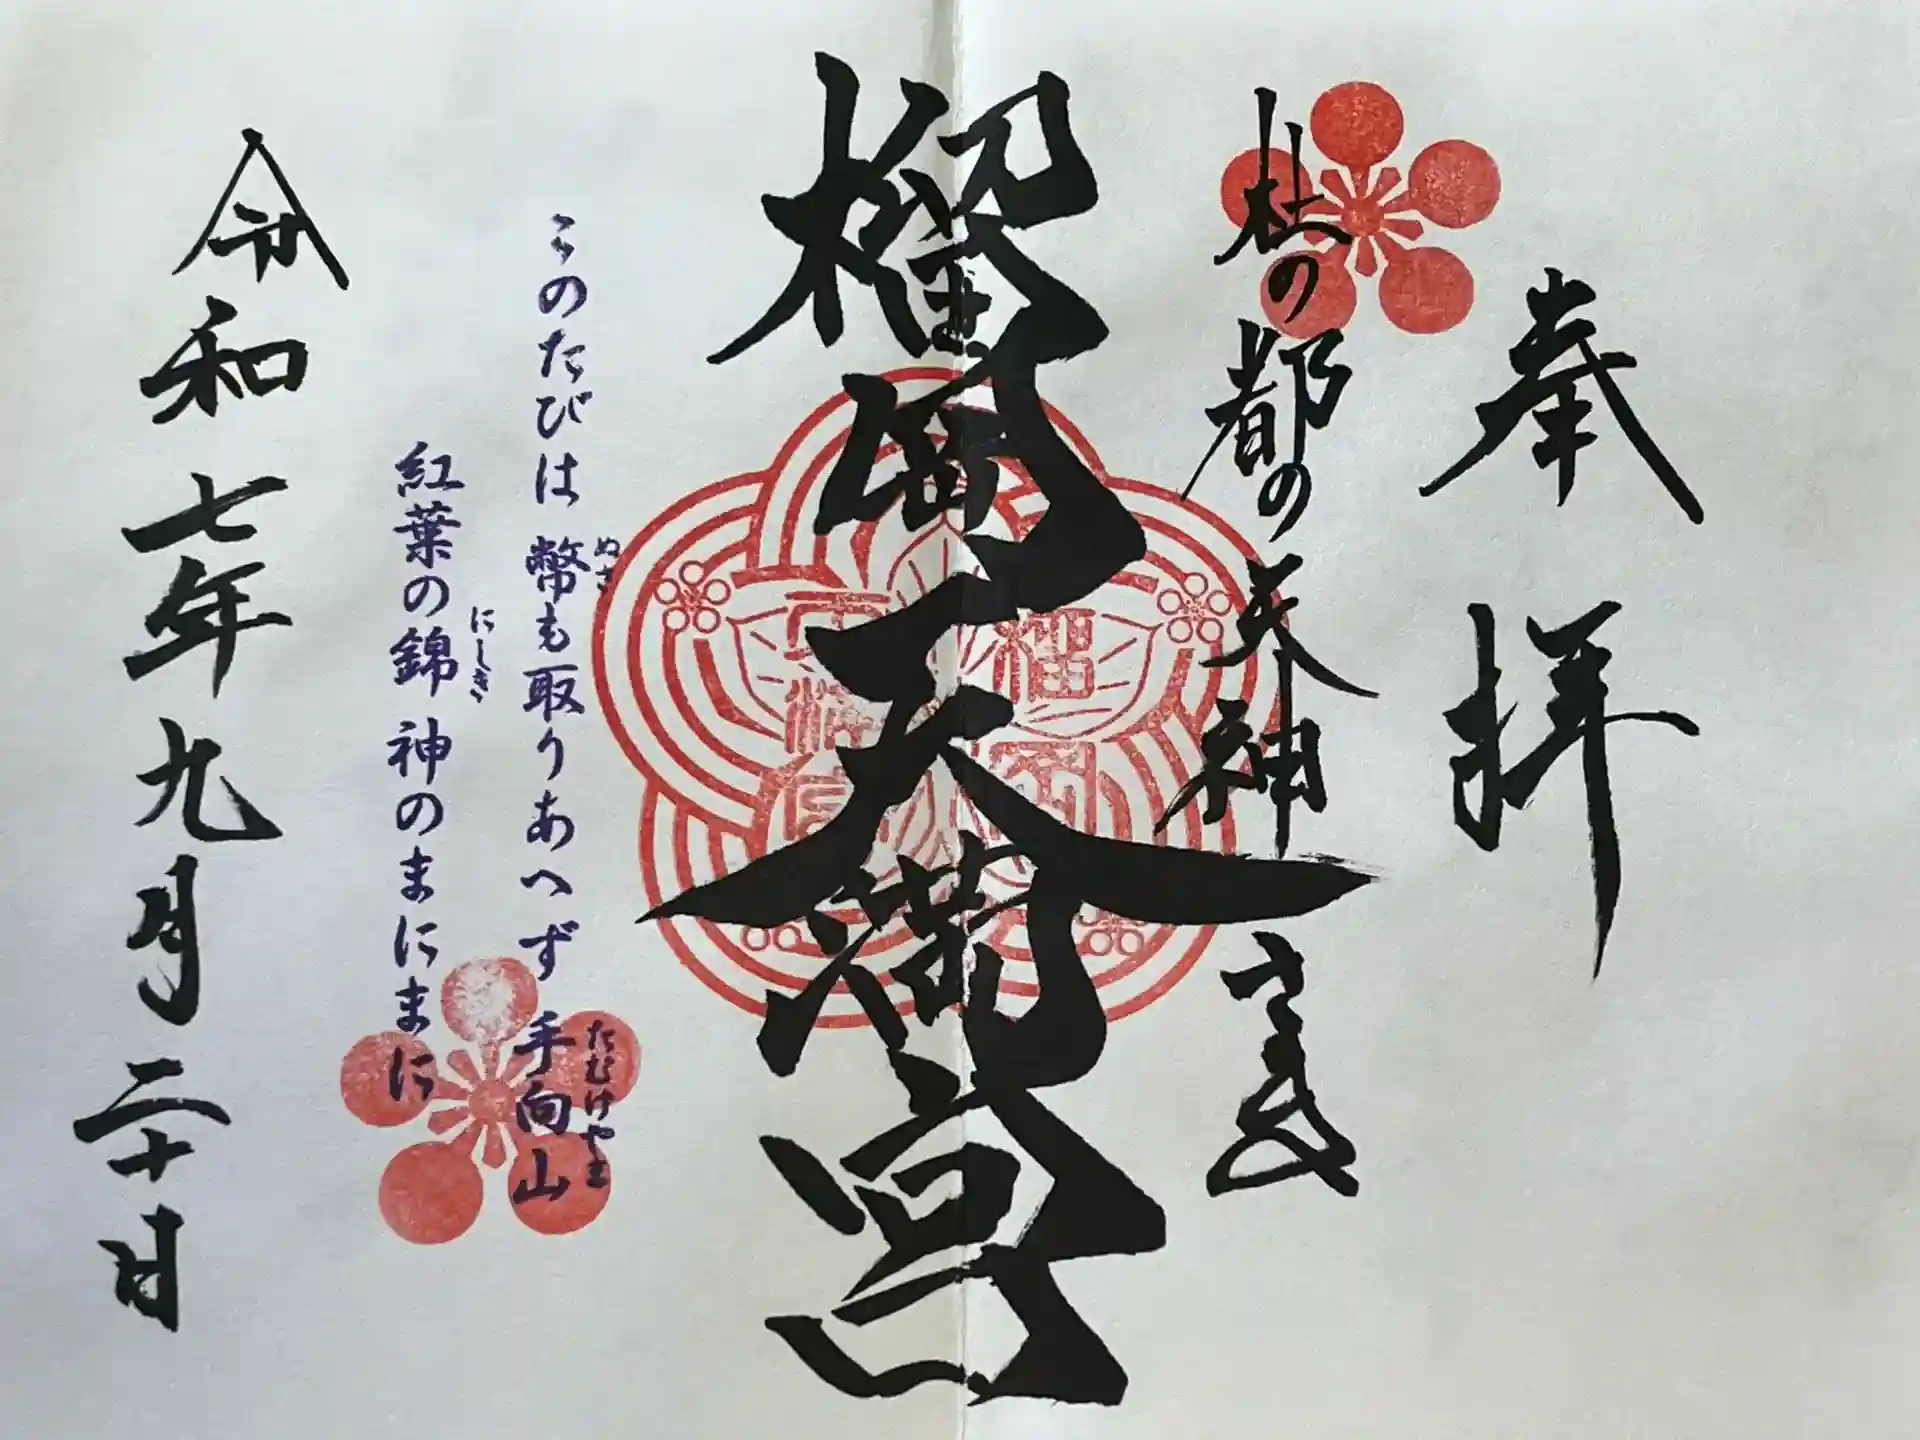 奉拝
杜の都の天神さま
榴岡天満宮
榴岡
天満宮
このたびは幣も取りあへず手向山
ぬさ
たむけやま
紅葉の錦神のまにまに
にしき
令和七年九月二十日